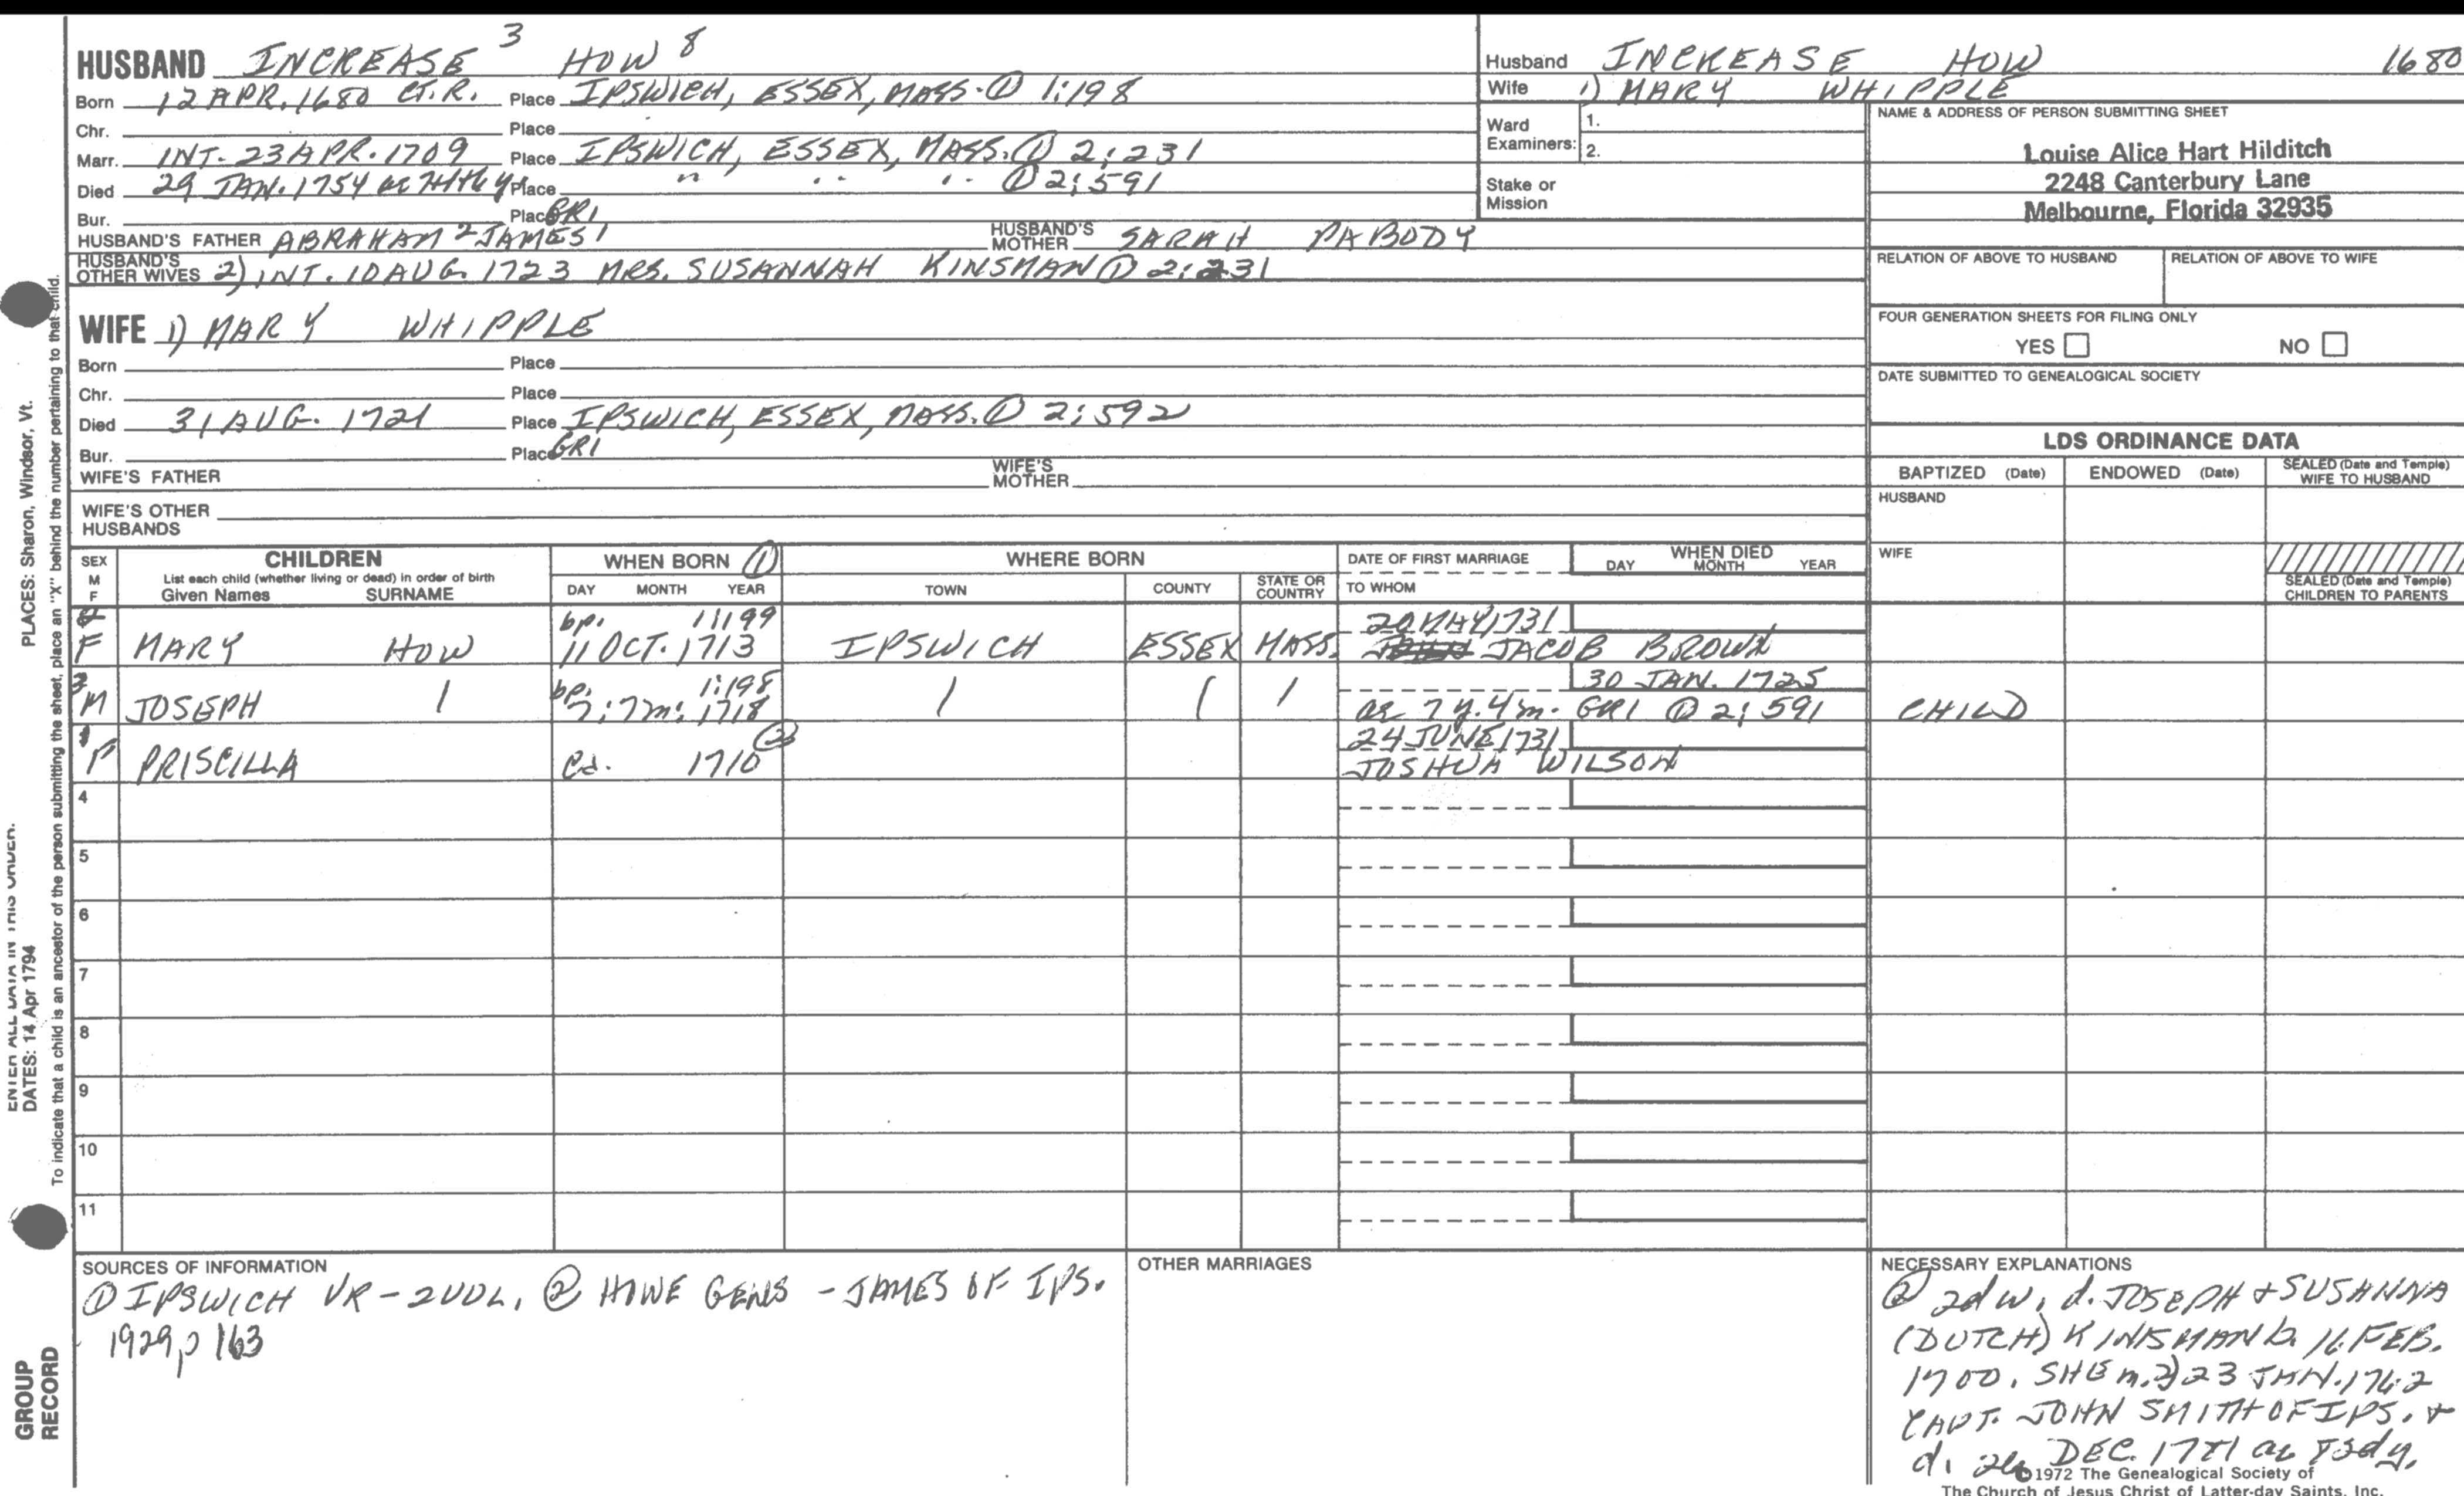 HUSBAND INCREASE 3 HOW 8
Born 12 APR. 1680 CT.R. Place IPSWICH, ESSEX, MASS. ① 1:198
Chr. Place
Marr. INT. 23 APR. 1709 Place IPSWICH, ESSEX, MASS. ① 2:231
Died 29 JAN. 1754 ae 74th y Place " " " ① 2:591
Bur. Place GR1
HUSBAND'S FATHER ABRAHAM 2 JAMES 1 HUSBAND'S MOTHER SARAH PABODY
HUSBAND'S OTHER WIVES 2) INT. 10 AUG. 1723 MRS. SUSANNAH KINSMAN ① 2:231
WIFE 1) MARY WHIPPLE
Born Place
Chr. Place
Died 31 AUG. 1721 Place IPSWICH, ESSEX, MASS. ① 2:592
Bur. Place GR1
WIFE'S FATHER WIFE'S MOTHER
WIFE'S OTHER HUSBANDS
Husband INCREASE HOW 1680
Wife 1) MARY WHIPPLE
Ward Examiners: 1.
2.
Stake or Mission
NAME & ADDRESS OF PERSON SUBMITTING SHEET
Louise Alice Hart Hilditch
2248 Canterbury Lane
Melbourne, Florida 32935
RELATION OF ABOVE TO HUSBAND RELATION OF ABOVE TO WIFE
FOUR GENERATION SHEETS FOR FILING ONLY
YES NO
DATE SUBMITTED TO GENEALOGICAL SOCIETY
LDS ORDINANCE DATA
BAPTIZED (Date) ENDOWED (Date) SEALED (Date and Temple) WIFE TO HUSBAND
HUSBAND
WIFE
SEALED (Date and Temple) CHILDREN TO PARENTS
SEX M F CHILDREN List each child (whether living or dead) in order of birth Given Names SURNAME
WHEN BORN ① DAY MONTH YEAR
WHERE BORN TOWN COUNTY STATE OR COUNTRY
DATE OF FIRST MARRIAGE TO WHOM
WHEN DIED DAY MONTH YEAR
bp. 1:199 20 MAY 1731
2 F MARY HOW 11 OCT. 1713 IPSWICH ESSEX MASS. JACOB BROWN
bp. 1:198 30 JAN. 1725
3 M JOSEPH 7:7m: 1718 ae 7 y. 4 m. GR1 ① 2:591 CHILD
② 24 JUNE 1731
1 F PRISCILLA cd. 1710 JOSHUA WILSON
4
5
6
7
8
9
10
11
SOURCES OF INFORMATION
① IPSWICH VR - 2 VOL, ② HOWE GENS - JAMES OF IPS.
1929, p 163
OTHER MARRIAGES
NECESSARY EXPLANATIONS
② 2d w. d. JOSEPH + SUSANNA
(DUTCH) KINSMAN b. 16 FEB.
1700. SHE m. 2) 23 JAN. 1762
CAPT. JOHN SMITH OF IPS. +
d. DEC.
©1972 The Genealogical Society of
The Church of Jesus Christ of Latter-day Saints, Inc.
PLACES: Sharon, Windsor, Vt.
ENTER ALL DATA IN THIS ORDER.
DATES: 14 Apr 1794
To indicate that a child is an ancestor of the person submitting the sheet, place an "X" behind the number pertaining to that child.
GROUP
RECORD